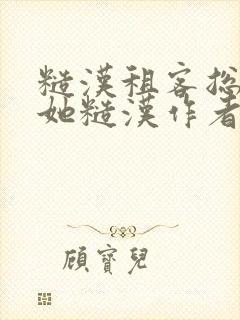 糙漢租客総
她糙漢作者
顧寶兒